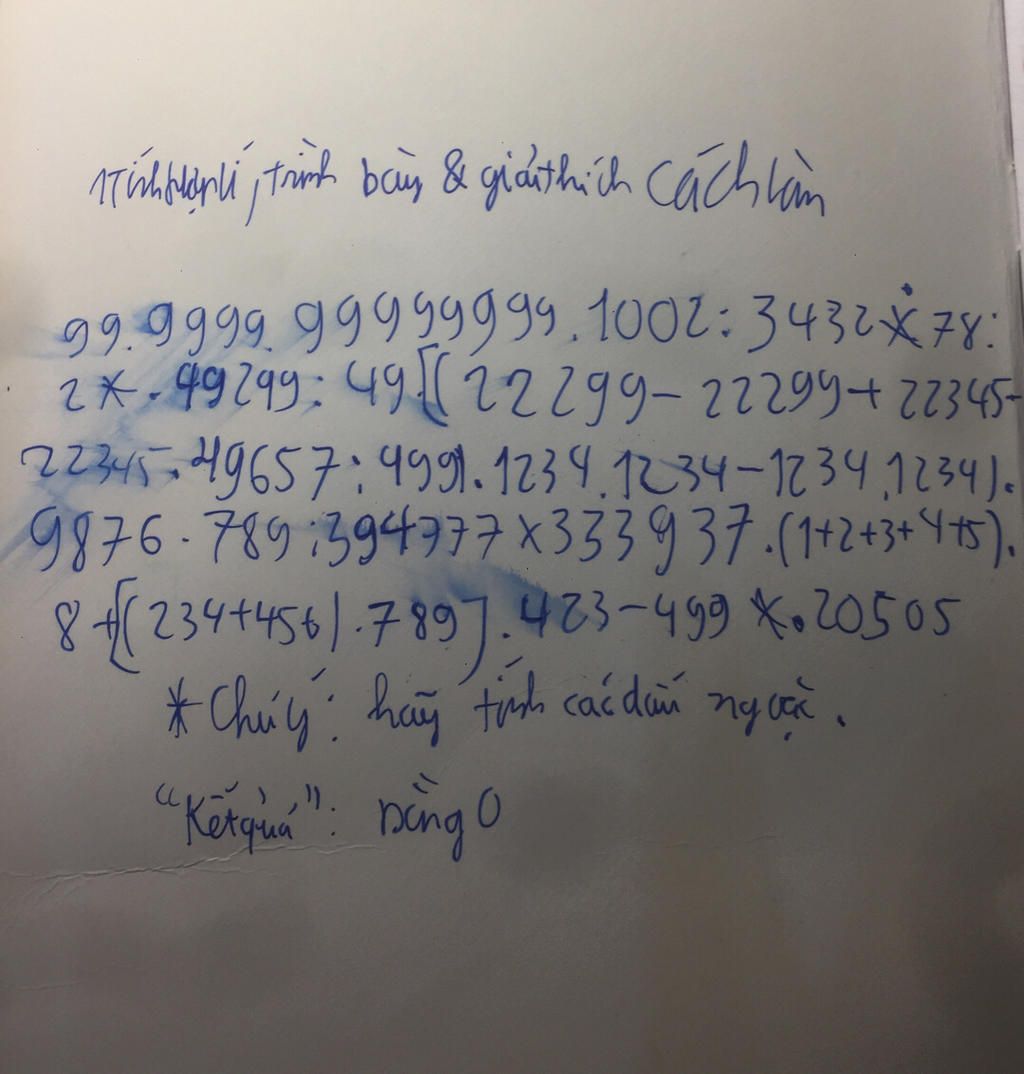 Tính hợp lí, trình bày & giải thích cách làm
99.9999.99999999.1002:3432×78:
2*.49299:49[(22299-22299+22345-
22345.49657:4991.1234.1234-1234.1234).
9876.789:394777×333937.(1+2+3+4+5).
8+[(234+456).789].423-499*.20505
*Chú ý: hãy tính các dấu ngoặc.
"Kết quả": Bằng 0